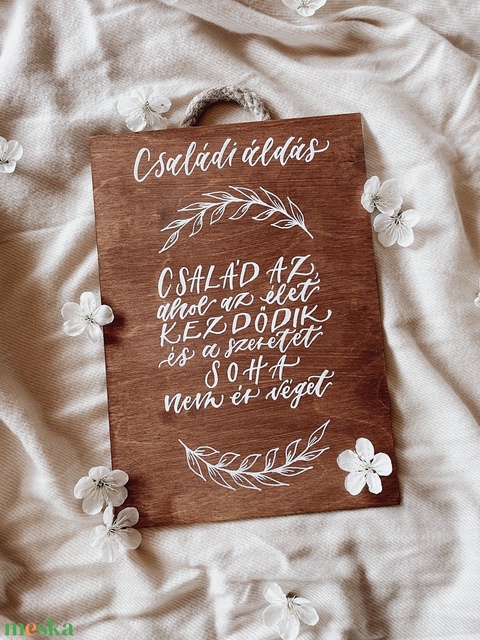 Családi áldás
CSALÁD AZ,
ahol az élet
KEZDŐDIK
és a szeretet
SOHA
nem ér véget
meska